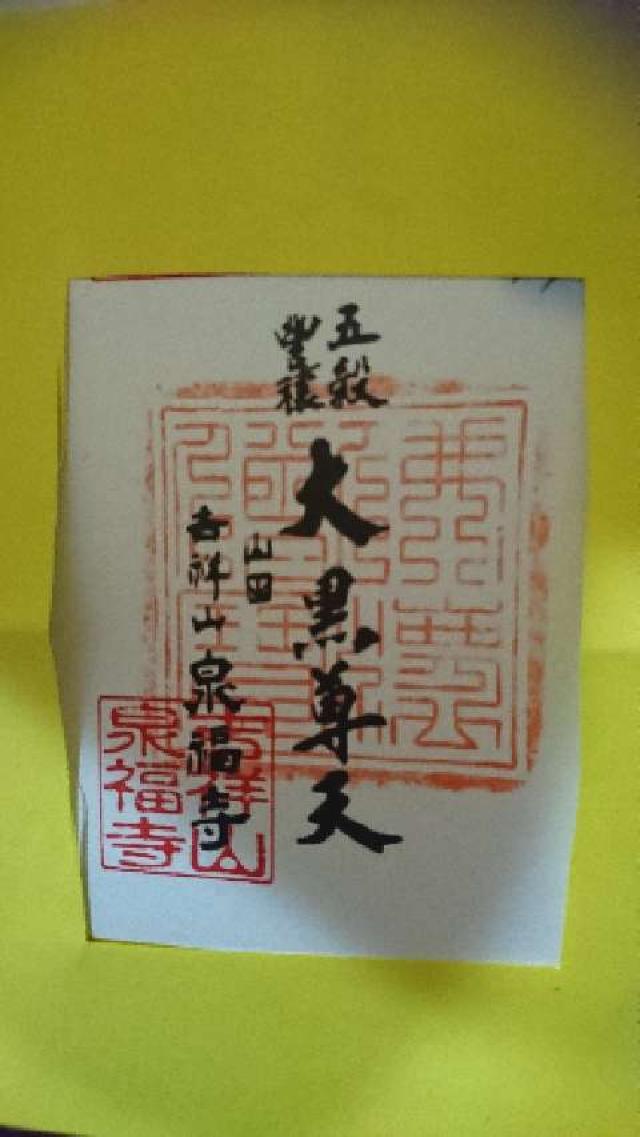 五穀
豊穣
大黒尊天
山田
吉祥山泉福寺
吉祥山
泉福寺